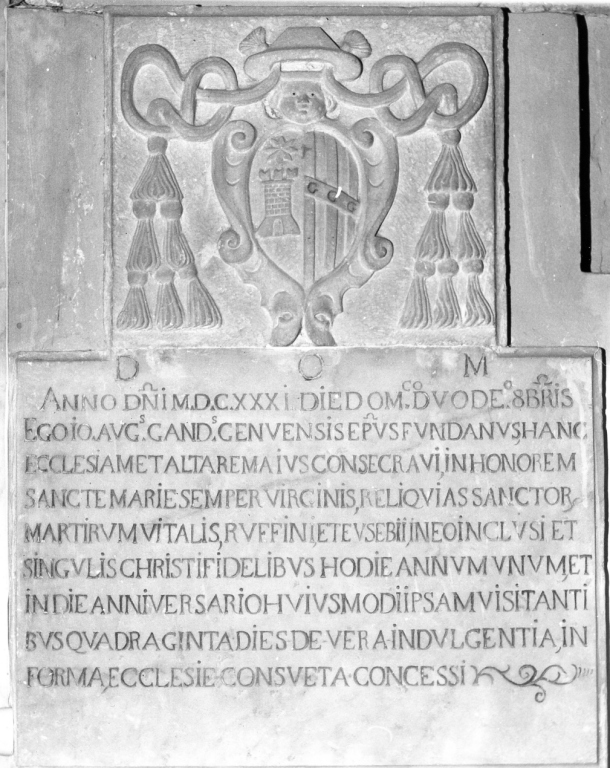 D O M
ANNO DÑI M.D.C.XXXI. DIE DOMᶜᵒ. DVODEº. 8BR̃IS
EGO IO. AVGˢ. GANDˢ. GENVENSIS EPŨS FVNDANVS, HANC
ECCLESIAM ET ALTARE MAIVS CONSECRAVI, IN HONOREM
SANCTE MARIE SEMPER VIRGINIS, RELIQVIAS SANCTOR,
MARTIRVM VITALIS, RVFFINI, ET EVSEBII, IN EO INCLVSI ET
SINGVLIS CHRISTI FIDELIBVS HODIE ANNVM VNVM, ET
IN DIE ANNIVERSARIO HVIVSMODI IPSAM VISITANTI
BVS QVADRAGINTA DIES·DE·VERA·INDVLGENTIA, IN
FORMA, ECCLESIE·CONSVETA·CONCESSI